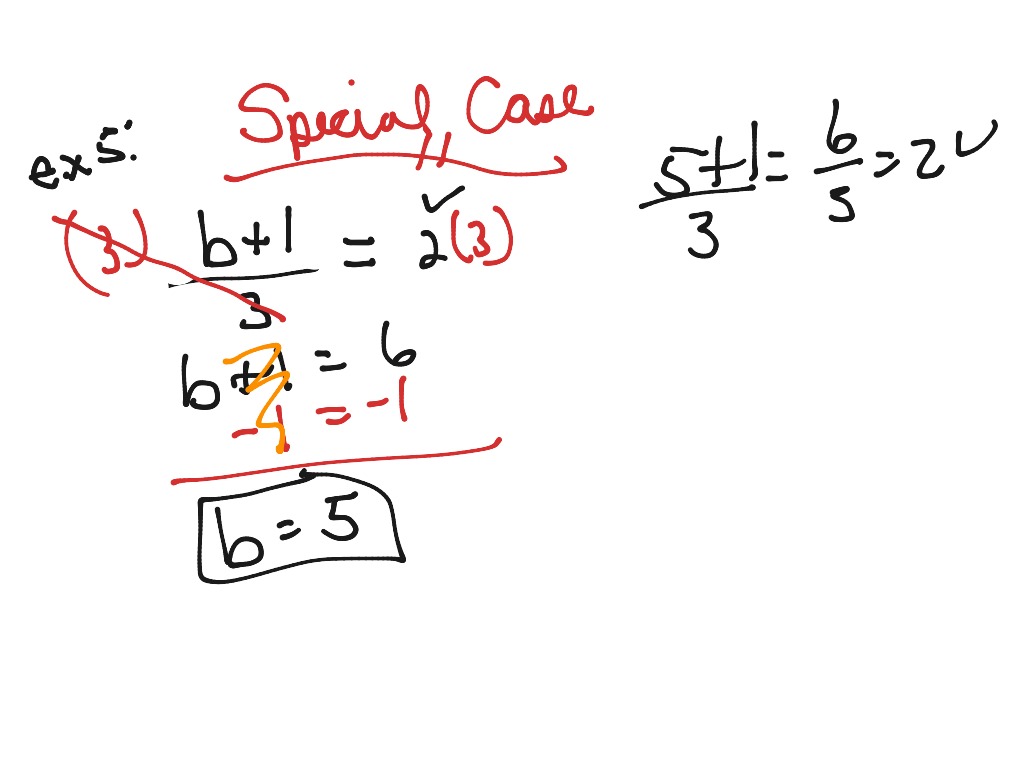 "Special" Case
ex 5:
(3) b+1/3 = 2(3) ✓
b+1 = 6
-1 = -1
b = 5
5+1/3 = 6/5 = 2 ✓